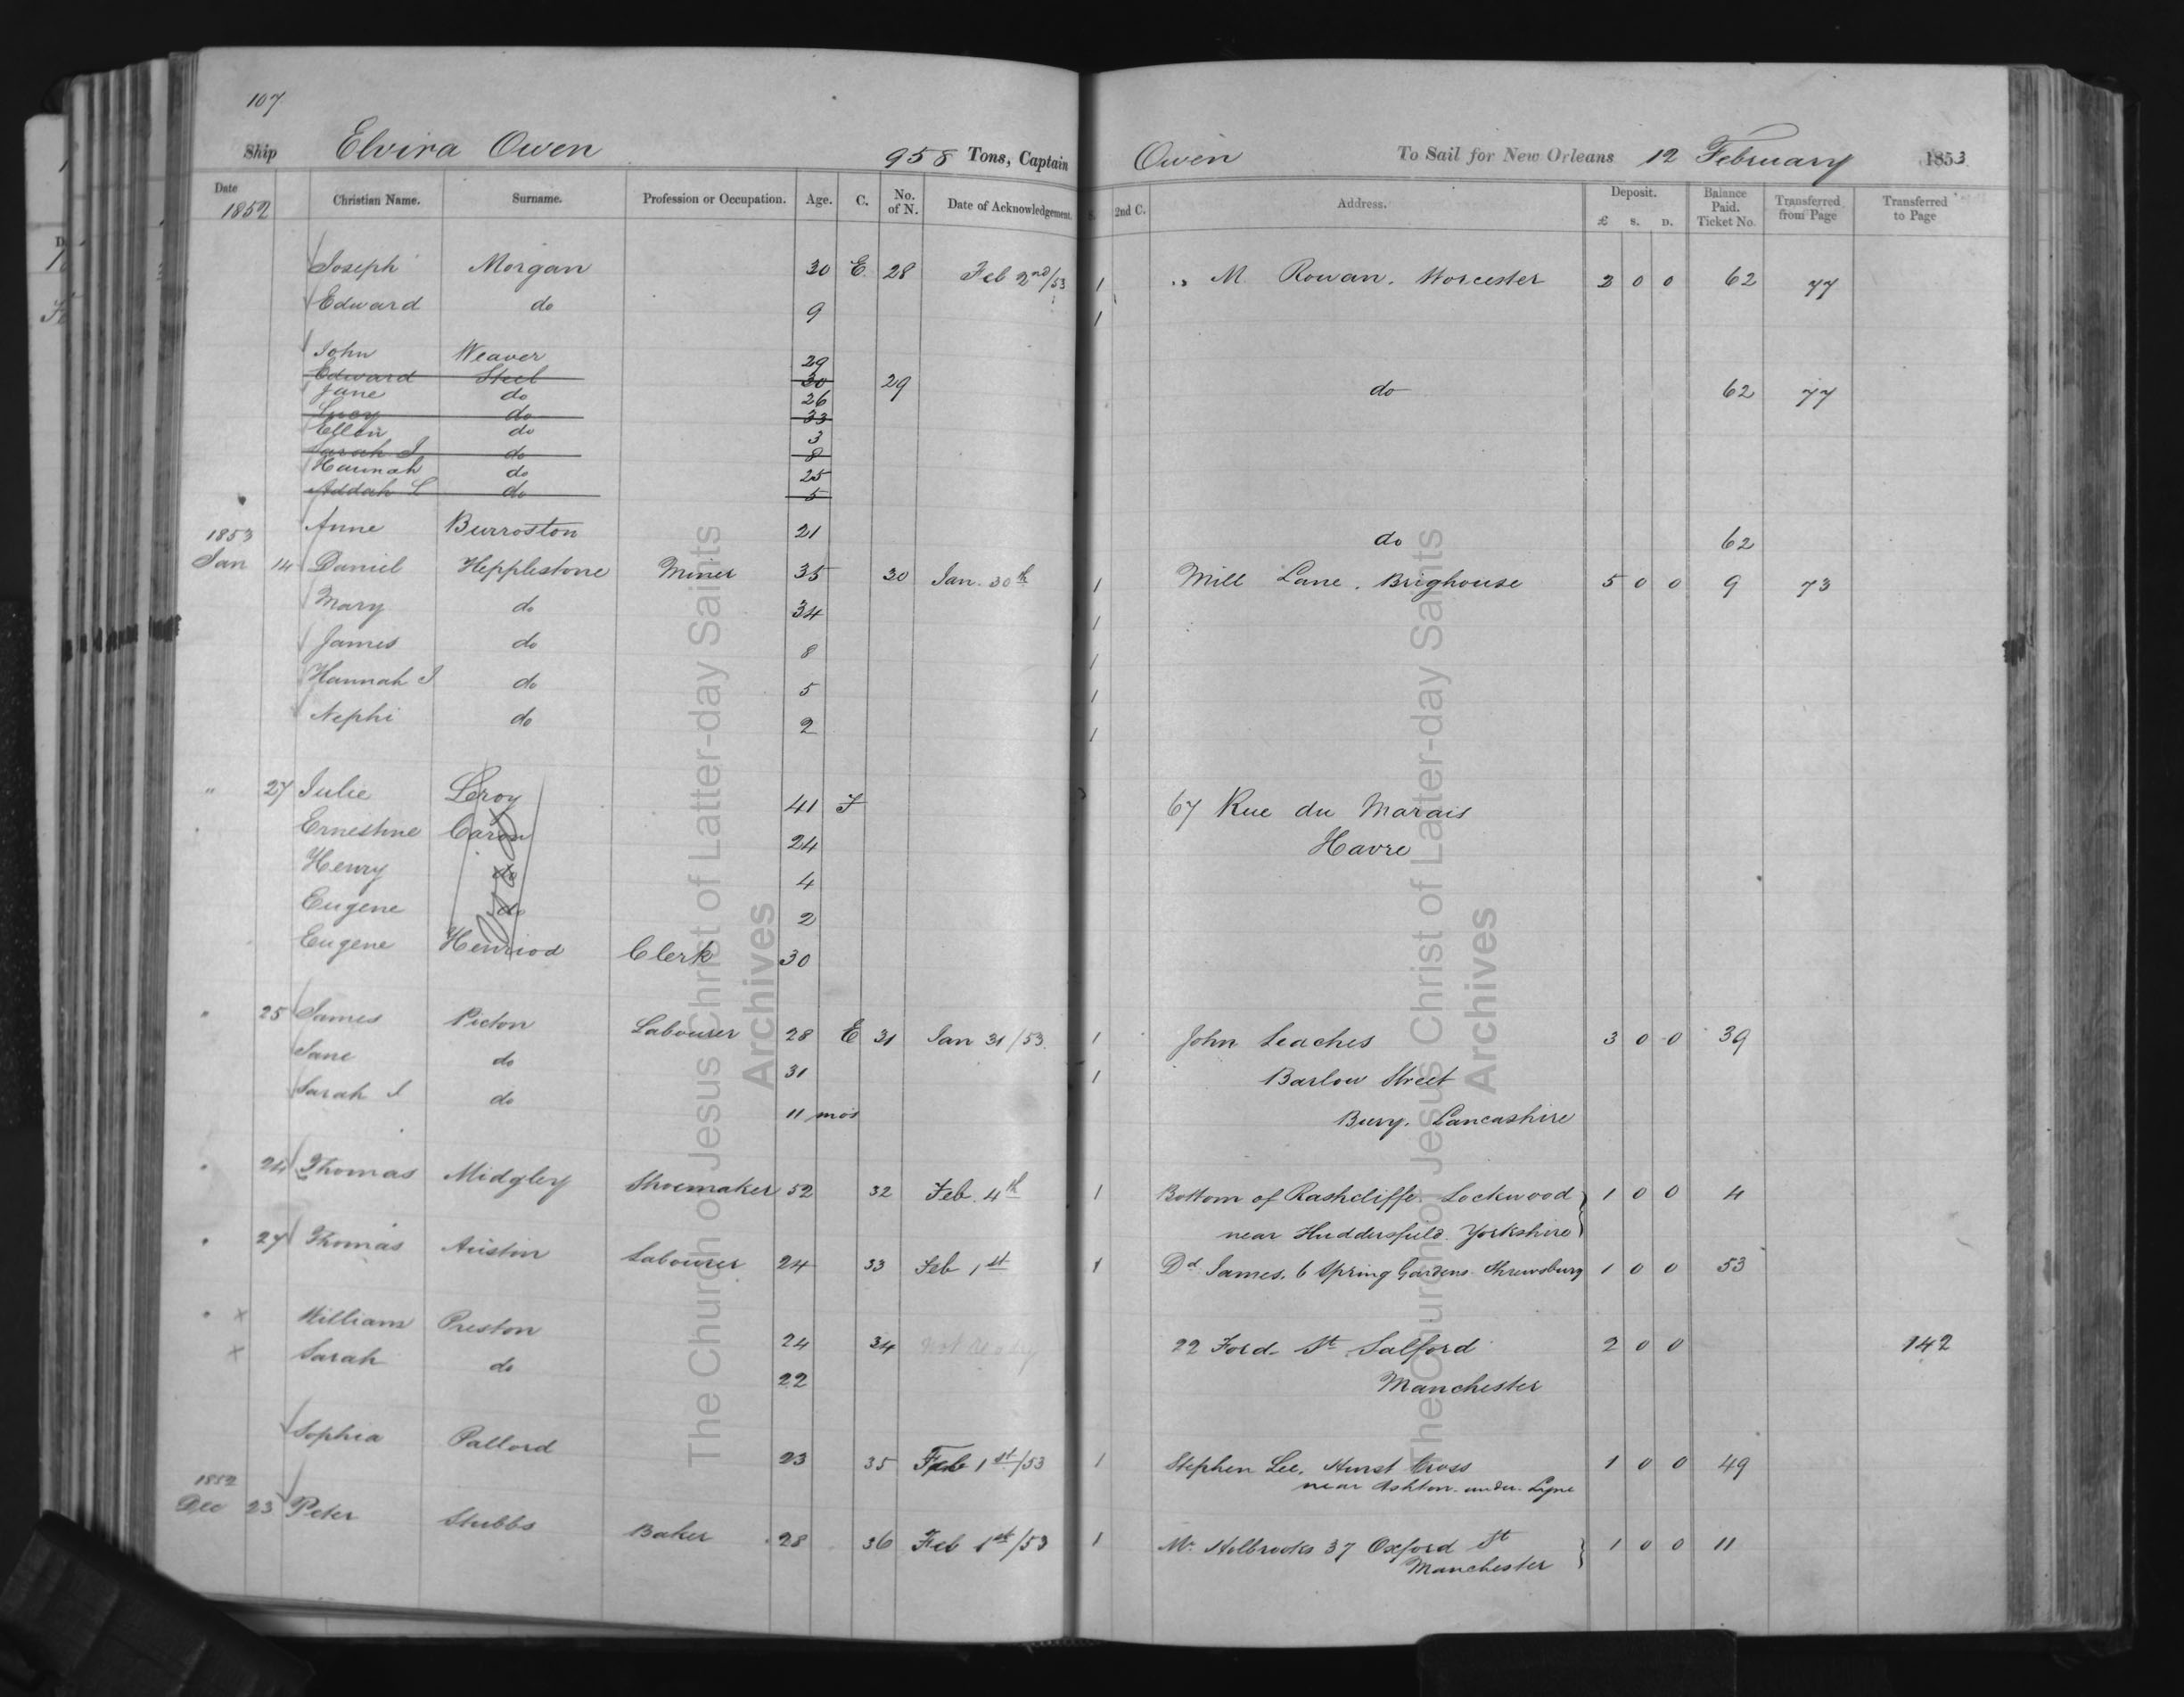 107
Ship Elvira Owen 958 Tons, Captain Owen To Sail for New Orleans 12 February 1853
Date Christian Name. Surname. Profession or Occupation. Age. C. No. of N. Date of Acknowledgement. S. 2nd C. Address. Deposit. £ S. D. Balance Paid. Ticket No. Transferred from Page Transferred to Page
1852
Joseph Morgan 30 E 28 Feb 2nd/53 1 " M. Rowan. Worcester 2 0 0 62 77
Edward do 9 1
John Weaver 29
Edward Steel 30 29 do 62 77
Jane do 26
Lucy do 33
Ellen do 3
Sarah J do 8
Hannah do 25
Addah L do 5
Anne Burroston 21 do 62
1853
Jan 14 Daniel Hepplestone Miner 35 30 Jan. 30th 1 Mill Lane. Brighouse 5 0 0 9 73
Mary do 34 1
James do 8 1
Hannah J do 5 1
Nephi do 2 1
" 27 Julie Leroy 41 F 67 Rue du Marais
Ernestine Caron 24 Havre
Henry do 4
Eugene do 2
Eugene Henriod Clerk 30
" 25 James Picton Labourer 28 E 31 Jan 31/53 1 John Leaches 3 0 0 39
Jane do 31 1 Barlow Street
Sarah J do 11 mos Bury. Lancashire
" 24 Thomas Midgley Shoemaker 52 32 Feb. 4th 1 Bottom of Rashcliffe. Lockwood 1 0 0 4
near Huddersfield. Yorkshire
" 27 Thomas Auston Labourer 24 33 Feb 1st 1 Dd James. 6 Spring Gardens Shrewsbury 1 0 0 53
" x William Preston 24 34 not ready 22 Ford St Salford 2 0 0 142
x Sarah do 22 Manchester
Sophia Pallord 23 35 Feb 1st/53 1 Stephen Lee, Hurst Cross 1 0 0 49
near Ashton-under-Lyne
1852
Dec 23 Peter Stubbs Baker 28 36 Feb 1st/53 1 Mr Holbrooks 37 Oxford St 1 0 0 11
Manchester
The Church of Jesus Christ of Latter-day Saints
Archives
The Church of Jesus Christ of Latter-day Saints
Archives